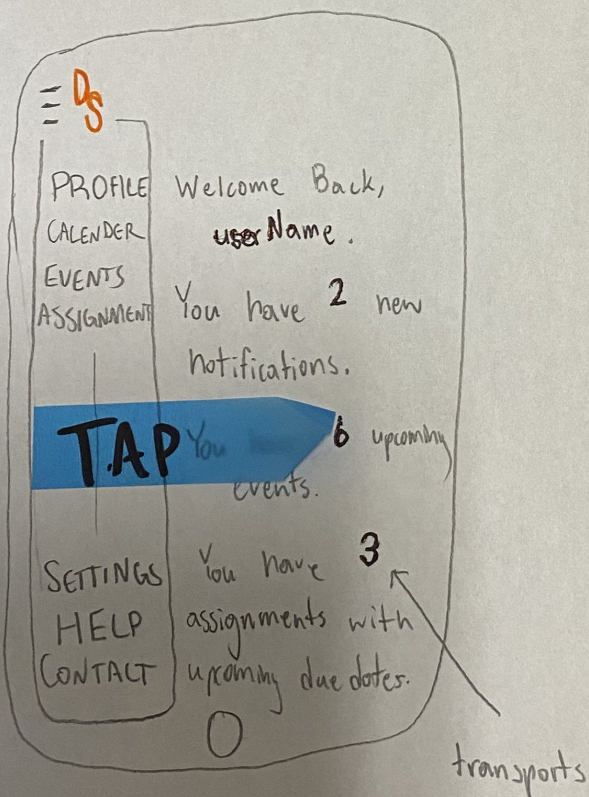 DS
PROFILE
CALENDER
EVENTS
ASSIGNMENT
SETTINGS
HELP
CONTACT
Welcome Back,
userName.
You have 2 new
notifications.
TAP
You 6 upcoming
events.
You have 3
assignments with
upcoming due dates.
transports